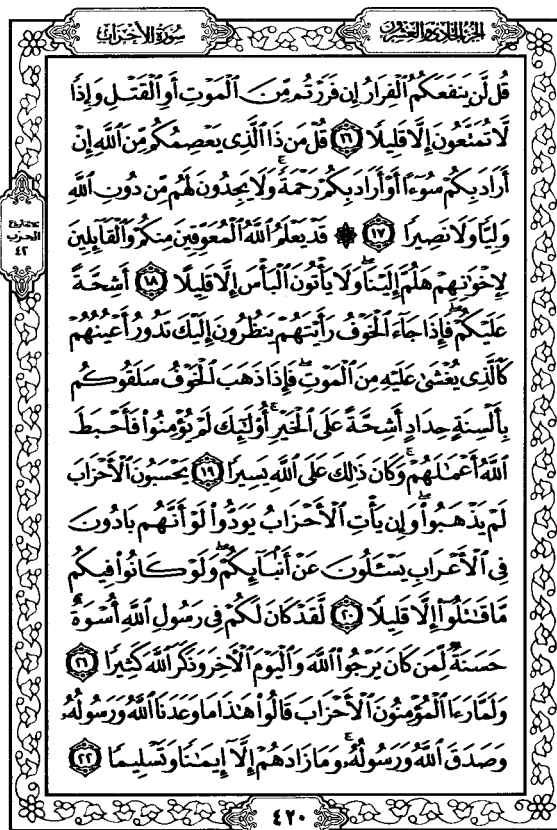 سُورَةُ الأَحْزَابِ
الجُزْءُ الحَادِي وَالعِشْرُونَ
قُل لَّن يَنفَعَكُمُ ٱلْفِرَارُ إِن فَرَرْتُم مِّنَ ٱلْمَوْتِ أَوِ ٱلْقَتْلِ وَإِذًا
لَّا تُمَتَّعُونَ إِلَّا قَلِيلًا ١٦ قُلْ مَن ذَا ٱلَّذِى يَعْصِمُكُم مِّنَ ٱللَّهِ إِنْ
أَرَادَ بِكُمْ سُوٓءًا أَوْ أَرَادَ بِكُمْ رَحْمَةً ۚ وَلَا يَجِدُونَ لَهُم مِّن دُونِ ٱللَّهِ
وَلِيًّا وَلَا نَصِيرًا ١٧ ۞ قَدْ يَعْلَمُ ٱللَّهُ ٱلْمُعَوِّقِينَ مِنكُمْ وَٱلْقَآئِلِينَ
الحزب
٤٢
لِإِخْوَٰنِهِمْ هَلُمَّ إِلَيْنَا ۖ وَلَا يَأْتُونَ ٱلْبَأْسَ إِلَّا قَلِيلًا ١٨ أَشِحَّةً
عَلَيْكُمْ ۖ فَإِذَا جَآءَ ٱلْخَوْفُ رَأَيْتَهُمْ يَنظُرُونَ إِلَيْكَ تَدُورُ أَعْيُنُهُمْ
كَٱلَّذِى يُغْشَىٰ عَلَيْهِ مِنَ ٱلْمَوْتِ ۖ فَإِذَا ذَهَبَ ٱلْخَوْفُ سَلَقُوكُم
بِأَلْسِنَةٍ حِدَادٍ أَشِحَّةً عَلَى ٱلْخَيْرِ ۚ أُو۟لَٰٓئِكَ لَمْ يُؤْمِنُوا۟ فَأَحْبَطَ
ٱللَّهُ أَعْمَٰلَهُمْ ۚ وَكَانَ ذَٰلِكَ عَلَى ٱللَّهِ يَسِيرًا ١٩ يَحْسَبُونَ ٱلْأَحْزَابَ
لَمْ يَذْهَبُوا۟ ۖ وَإِن يَأْتِ ٱلْأَحْزَابُ يَوَدُّوا۟ لَوْ أَنَّهُم بَادُونَ
فِى ٱلْأَعْرَابِ يَسْـَٔلُونَ عَنْ أَنۢبَآئِكُمْ ۖ وَلَوْ كَانُوا۟ فِيكُم
مَّا قَٰتَلُوٓا۟ إِلَّا قَلِيلًا ٢٠ لَّقَدْ كَانَ لَكُمْ فِى رَسُولِ ٱللَّهِ أُسْوَةٌ
حَسَنَةٌ لِّمَن كَانَ يَرْجُوا۟ ٱللَّهَ وَٱلْيَوْمَ ٱلْءَاخِرَ وَذَكَرَ ٱللَّهَ كَثِيرًا ٢١
وَلَمَّا رَءَا ٱلْمُؤْمِنُونَ ٱلْأَحْزَابَ قَالُوا۟ هَٰذَا مَا وَعَدَنَا ٱللَّهُ وَرَسُولُهُۥ
وَصَدَقَ ٱللَّهُ وَرَسُولُهُۥ ۚ وَمَا زَادَهُمْ إِلَّآ إِيمَٰنًا وَتَسْلِيمًا ٢٢
٤٢٠